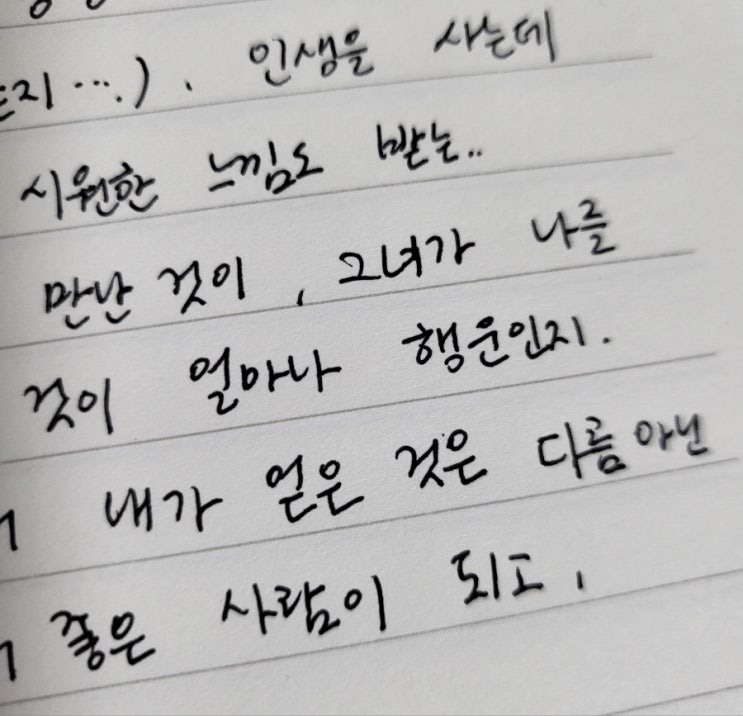 는지…). 인생을 사는데
시원한 느낌도 받는..
만난 것이, 그녀가 나를
것이 얼마나 행운인지.
내가 얻은 것은 다름아닌
좋은 사람이 되고,